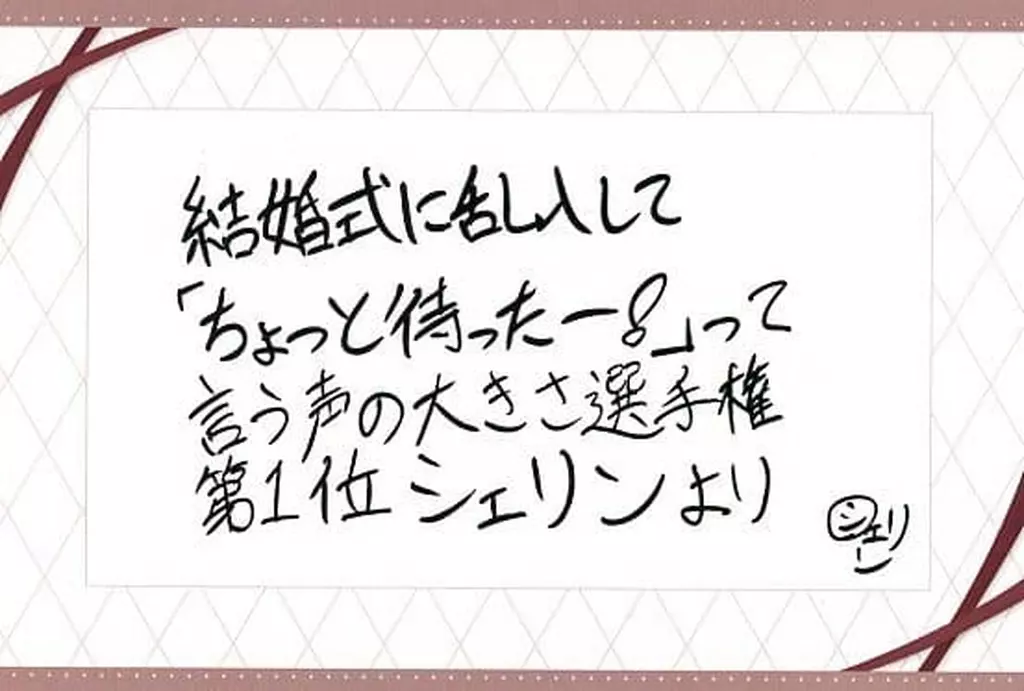 結婚式に乱入して
「ちょっと待ったー!」って
言う声の大きさ選手権
第1位 シェリンより
シェリン